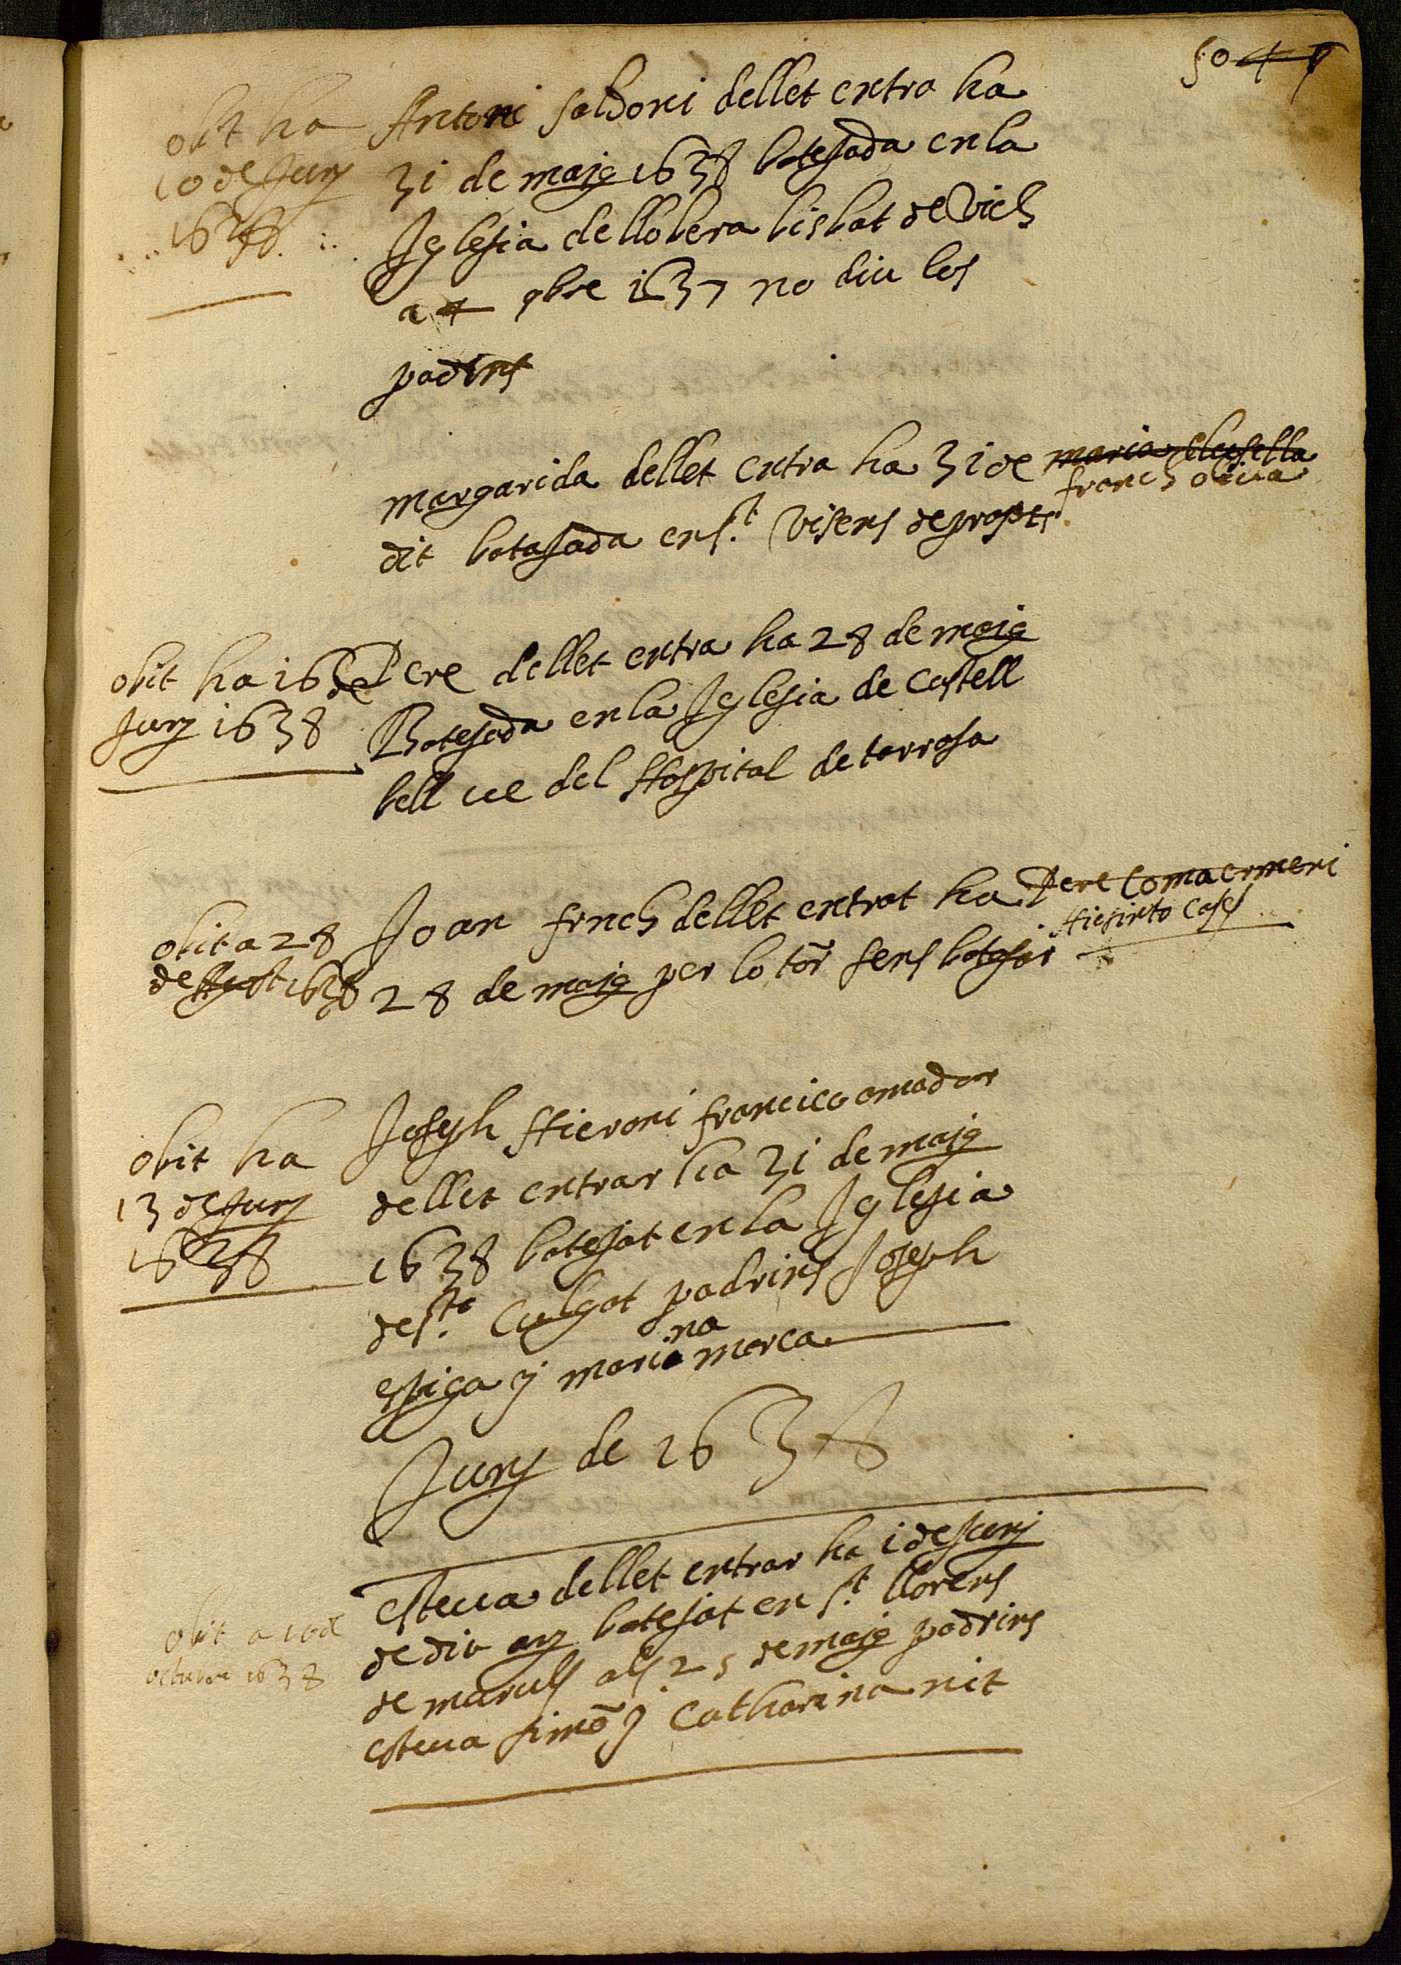 50
obit ha
10 de Juny
1638
Antoni saldoni dellet entra ha
31 de maig 1638 botesada en la
Iglesia de llobera bisbat de Vich
a 4 obre 1637 no diu los
padrins
margarida dellet entra ha 31 de maria llusella
franch oliva
dit botasada en st. Visens de propts
obit ha 16 de
Juny 1638
Pere dellet entra ha 28 de maig
Botejada en la Iglesia de Castell
bell ve del Hospital de tarrasa
obit a 28
de Agost 1638
Joan frnch dellet entrat ha Pere Coma ermeri
Hiesinto Cases
28 de maig per lo tor sens botesar
obit ha
13 de Juny
1638
Joseph Hieroni francico amador
dellet entrar ha 31 de maig
1638 botejat en la Iglesia
de st. Culgat padrins Joseph
espiga y mariana marca
Juny de 1638
obit a 10 d
octubre 1638
Esteva dellet entrar ha 1 de Juny
de dit any botejat en st. llorens
de muruls als 25 de maig padrins
esteva simo y Catharina nit